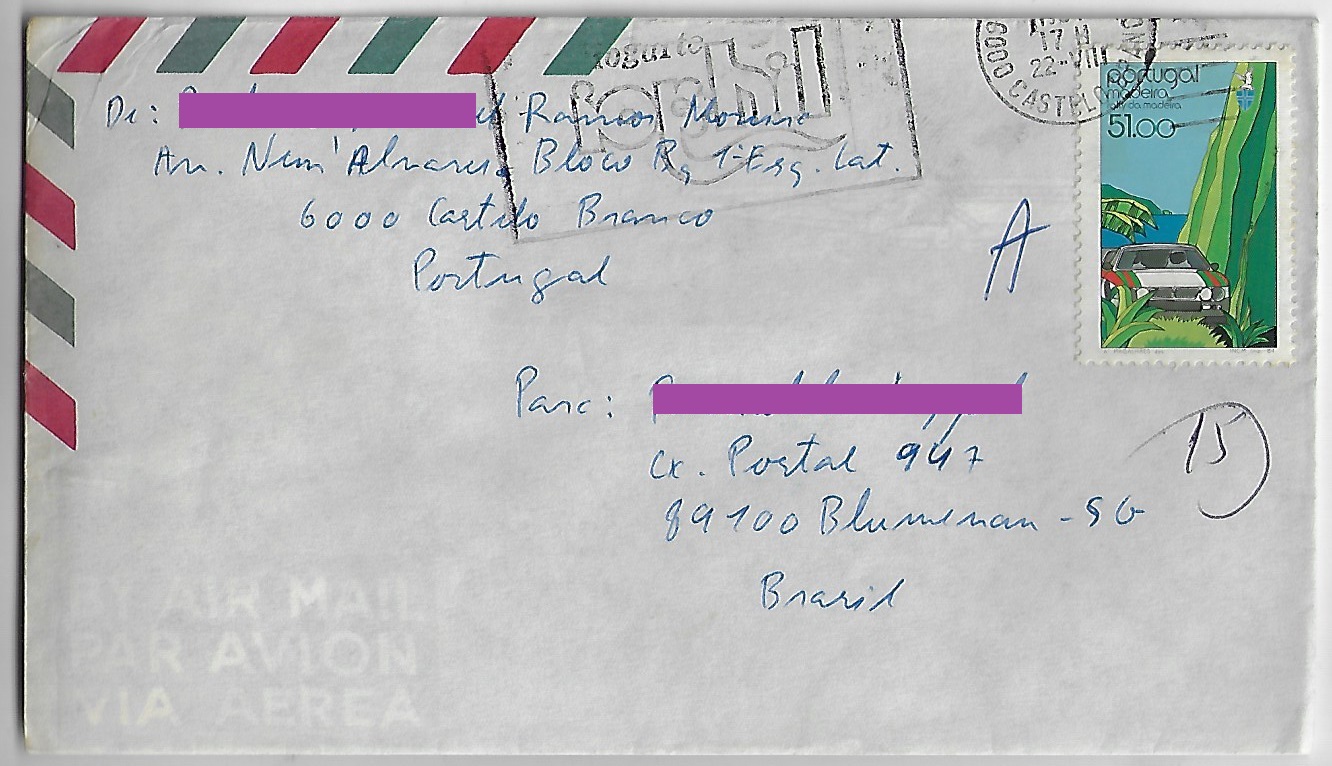 iogurte
forhil
17 H
22-VIII
6000 CASTELO BRANCO
portugal
madeira
rally da madeira
51.00
De: Ramos Moreno
Av. Nun'Alvares, Bloco R, 1º Esq. Lat.
6000 Castelo Branco
Portugal
A
Para:
Cx. Postal 947
89100 Blumenau - SC
Brasil
15
AIR MAIL
PAR AVION
VIA AEREA